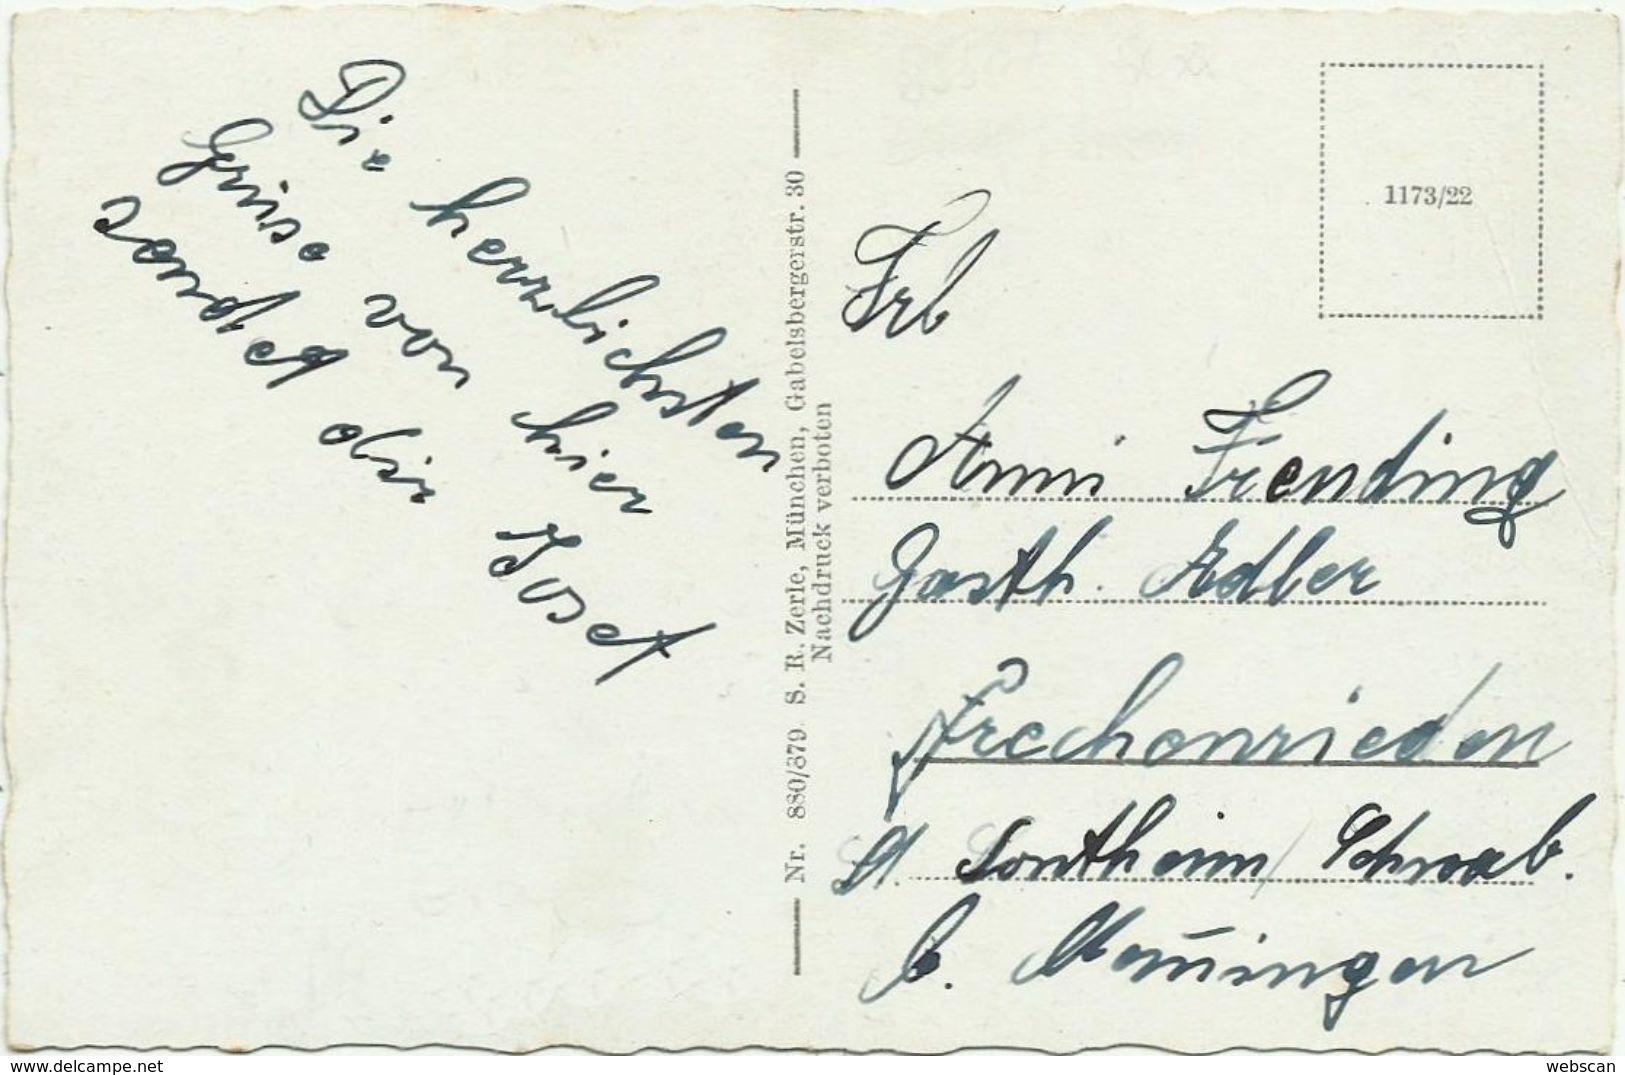 Die herzlichsten
Grüse von hier
sendet dir Josef
Nr. 880/879 S. R. Zerle, München, Gabelsbergerstr. 30
Nachdruck verboten
1173/22
Anni Frending
Gasth. Adler
Frechenrieden
St. Sontheim / Schwab.
b. Memingen
www.delcampe.net
webscan